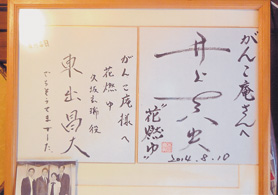 がんこ庵さんへ
井上真央
"花燃ゆ"
2014.8.10
がんこ庵様へ
花燃ゆ
久坂玄瑞役
東出昌大
ごちそうさまでした。